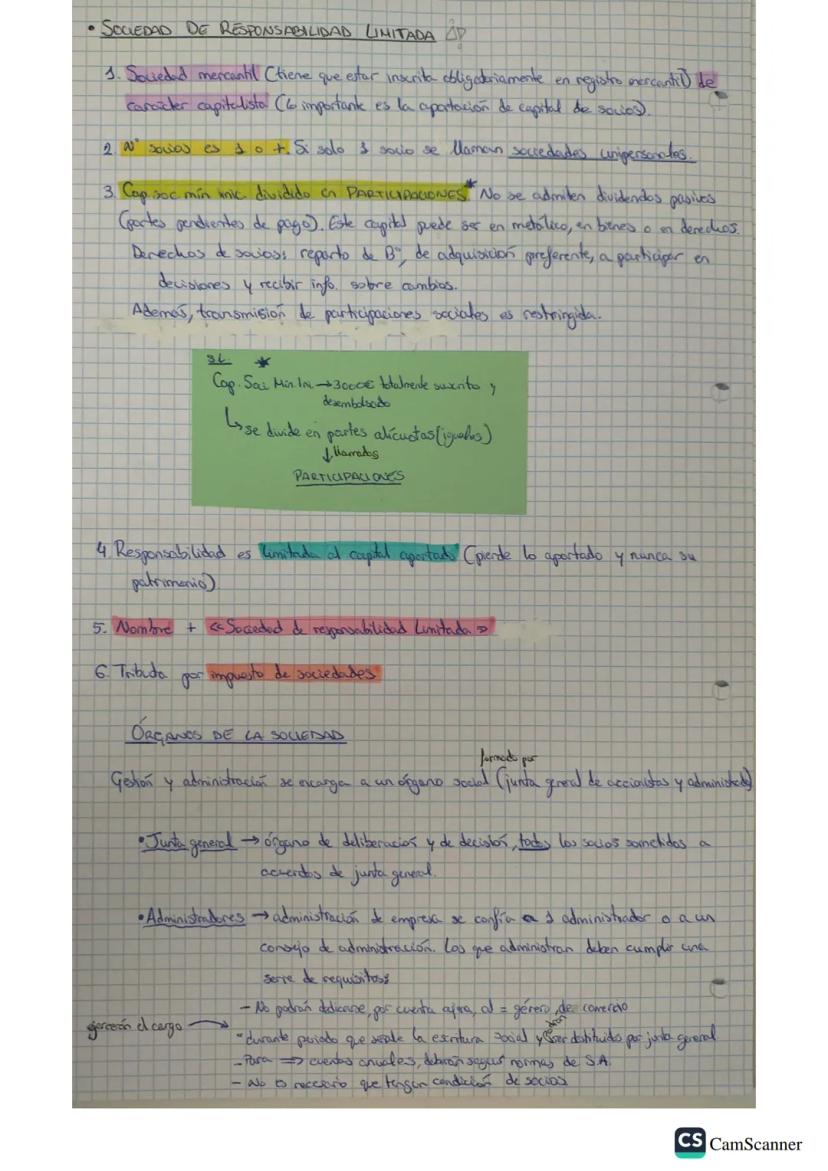 • SOCIEDAD DE RESPONSABILIDAD LIMITADA
1. Sociedad mercantil (tiene que estar inscrita obligatoriamente en registro mercantil) de
carácter capitalista (lo importante es la aportación de capital de socios).
2. Nº socios es 1 o +. Si solo 1 socio se llaman sociedades unipersonales.
3. Cap. soc mín inic. dividido en PARTICIPACIONES.* No se admiten dividendos pasivos
(partes pendientes de pago). Este capital puede ser en metálico, en bienes o en derechos.
Derechos de socios: reparto de Bº, de adquisición preferente, a participar en
decisiones y recibir info. sobre cambios.
Además, transmisión de participaciones sociales es restringida.
SL. *
Cap. Soc. Min. In. → 3000€ totalmente suscrito y
desembolsado
↳ se divide en partes alícuotas (iguales)
↓ llamados
PARTICIPACIONES
4. Responsabilidad es limitada al capital aportado (pierde lo aportado y nunca su
patrimonio)
5. Nombre + «Sociedad de responsabilidad Limitada»
6. Tributa por impuesto de sociedades
ÓRGANOS DE LA SOCIEDAD
formado por
Gestión y administración se encarga a un órgano social (junta general de accionistas y administrad)
• Junta general → órgano de deliberación y de decisión, todos los socios sometidos a
acuerdos de junta general.
• Administradores → administración de empresa se confía a 1 administrador o a un
consejo de administración. Los que administran deben cumplir una
serie de requisitos:
- No podrán dedicarse, por cuenta ajena, al = género de comercio
ejercerán el cargo → - durante periodo que señale la escritura social y podrán ser destituidos por junta general
- Para ⇒ cuentas anuales, deberán seguir normas de S.A.
- No es necesario que tengan condición de socios
CS CamScanner